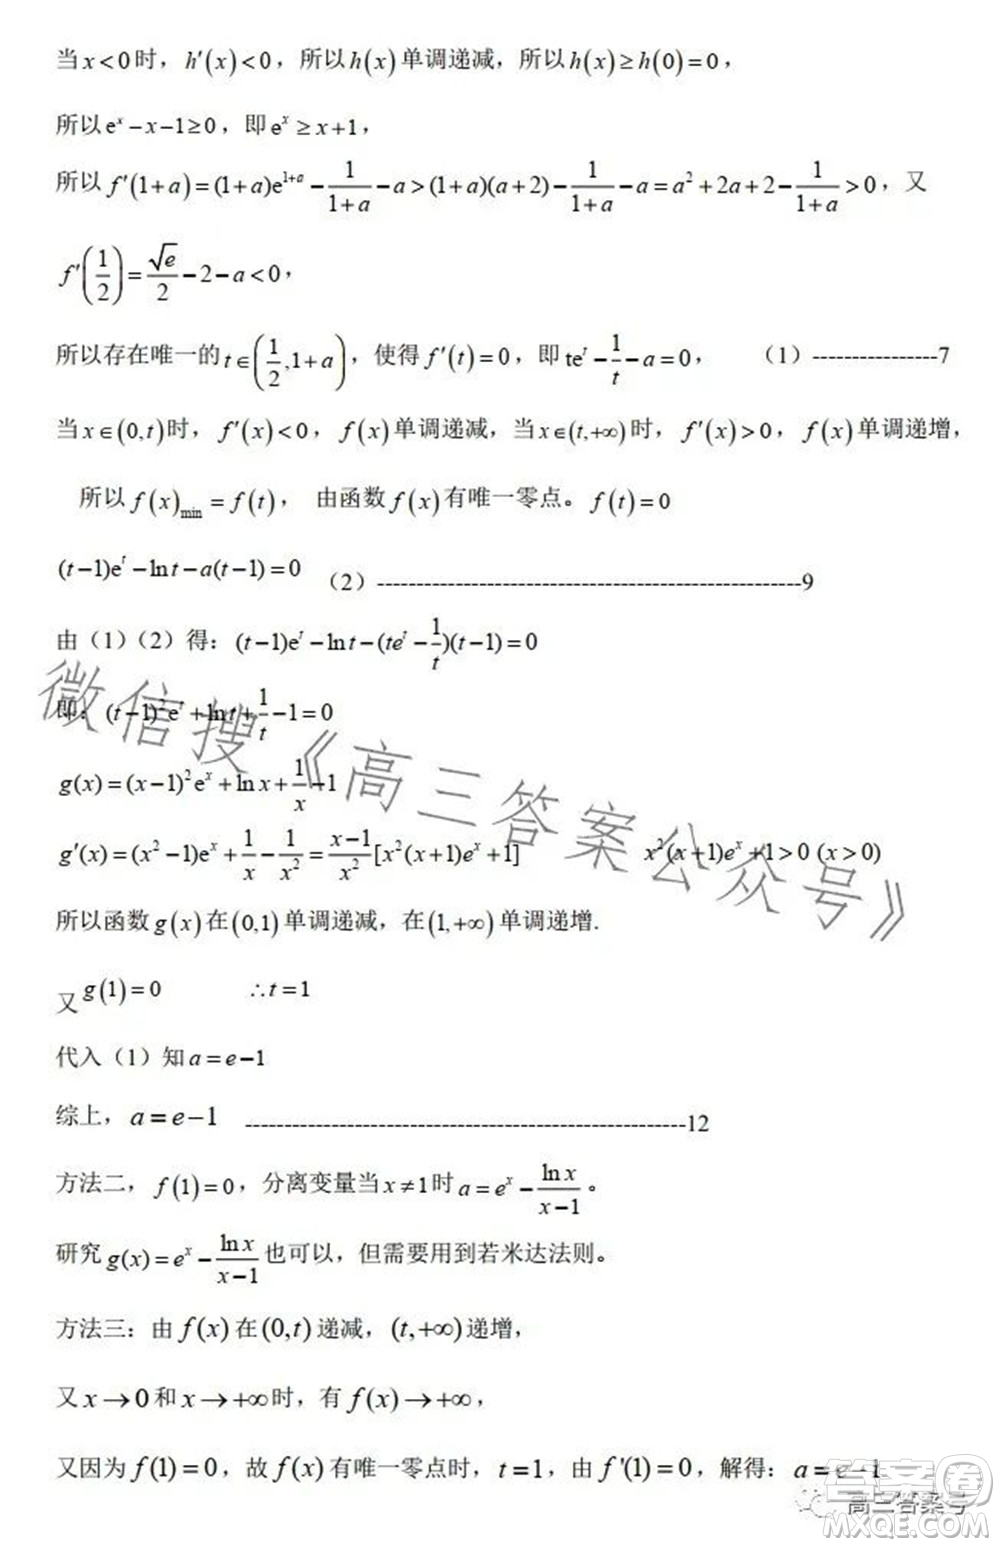 当x<0时，h′(x)<0，所以h(x)单调递减，所以h(x)≥h(0)=0，
所以eˣ−x−1≥0，即eˣ≥x+1，
所以f′(1+a)=(1+a)e¹⁺ᵃ−1/(1+a)−a>(1+a)(a+2)−1/(1+a)−a=a²+2a+2−1/(1+a)>0，又
f′(1/2)=√e/2−2−a<0，
所以存在唯一的t∈(1/2,1+a)，使得f′(t)=0，即teᵗ−1/t−a=0，（1）----------------7
当x∈(0,t)时，f′(x)<0，f(x)单调递减，当x∈(t,+∞)时，f′(x)>0，f(x)单调递增，
所以f(x)min=f(t)，由函数f(x)有唯一零点。f(t)=0
(t−1)eᵗ−lnt−a(t−1)=0（2）------------------------------------------------------9
由（1）（2）得：(t−1)eᵗ−lnt−(teᵗ−1/t)(t−1)=0
即：(t−1)²eᵗ+lnt+1/t−1=0
g(x)=(x−1)²eˣ+lnx+1/x−1
g′(x)=(x²−1)eˣ+1/x−1/x²=(x−1)/x²[x²(x+1)eˣ+1] x²(x+1)eˣ+1>0 (x>0)
所以函数g(x)在(0,1)单调递减，在(1,+∞)单调递增.
又g(1)=0 ∴t=1
代入（1）知a=e−1
综上，a=e−1 --------------------------------------------------------12
方法二，f(1)=0，分离变量当x≠1时a=eˣ−lnx/(x−1)。
研究g(x)=eˣ−lnx/(x−1)也可以，但需要用到若米达法则。
方法三：由f(x)在(0,t)递减，(t,+∞)递增，
又x→0和x→+∞时，有f(x)→+∞，
又因为f(1)=0，故f(x)有唯一零点时，t=1，由f'(1)=0，解得：a=e−1
微信搜《高三答案公众号》
高三答案号
答案圈
MXQE.COM